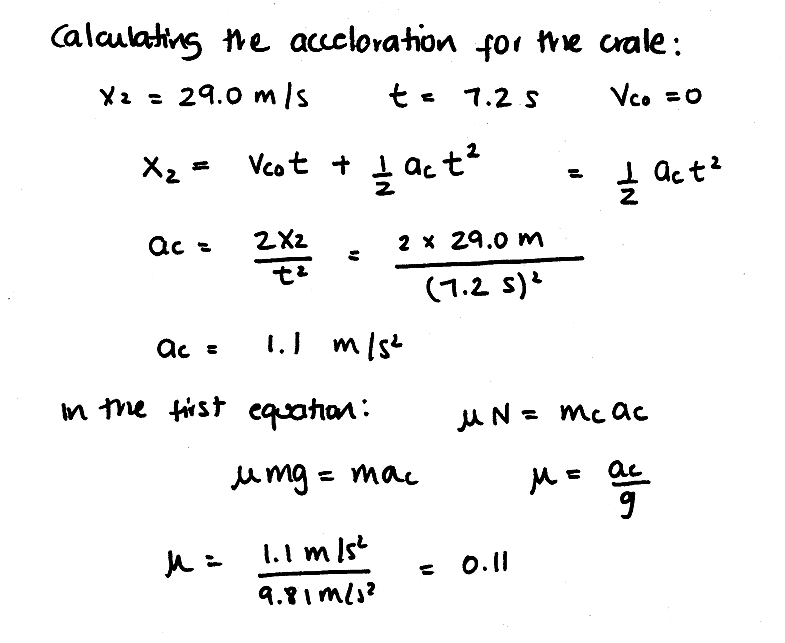 Calculating the accceloration for the crale:
x₂ = 29.0 m/s t = 7.2 s Vco = 0
x₂ = Vco t + 1/2 ac t² = 1/2 ac t²
ac = 2x₂/t² = 2 × 29.0 m/(7.2 s)²
ac = 1.1 m/s²
In the first equation: μN = mc ac
μmg = mac μ = ac/g
μ = 1.1 m/s²/9.81 m/s² = 0.11